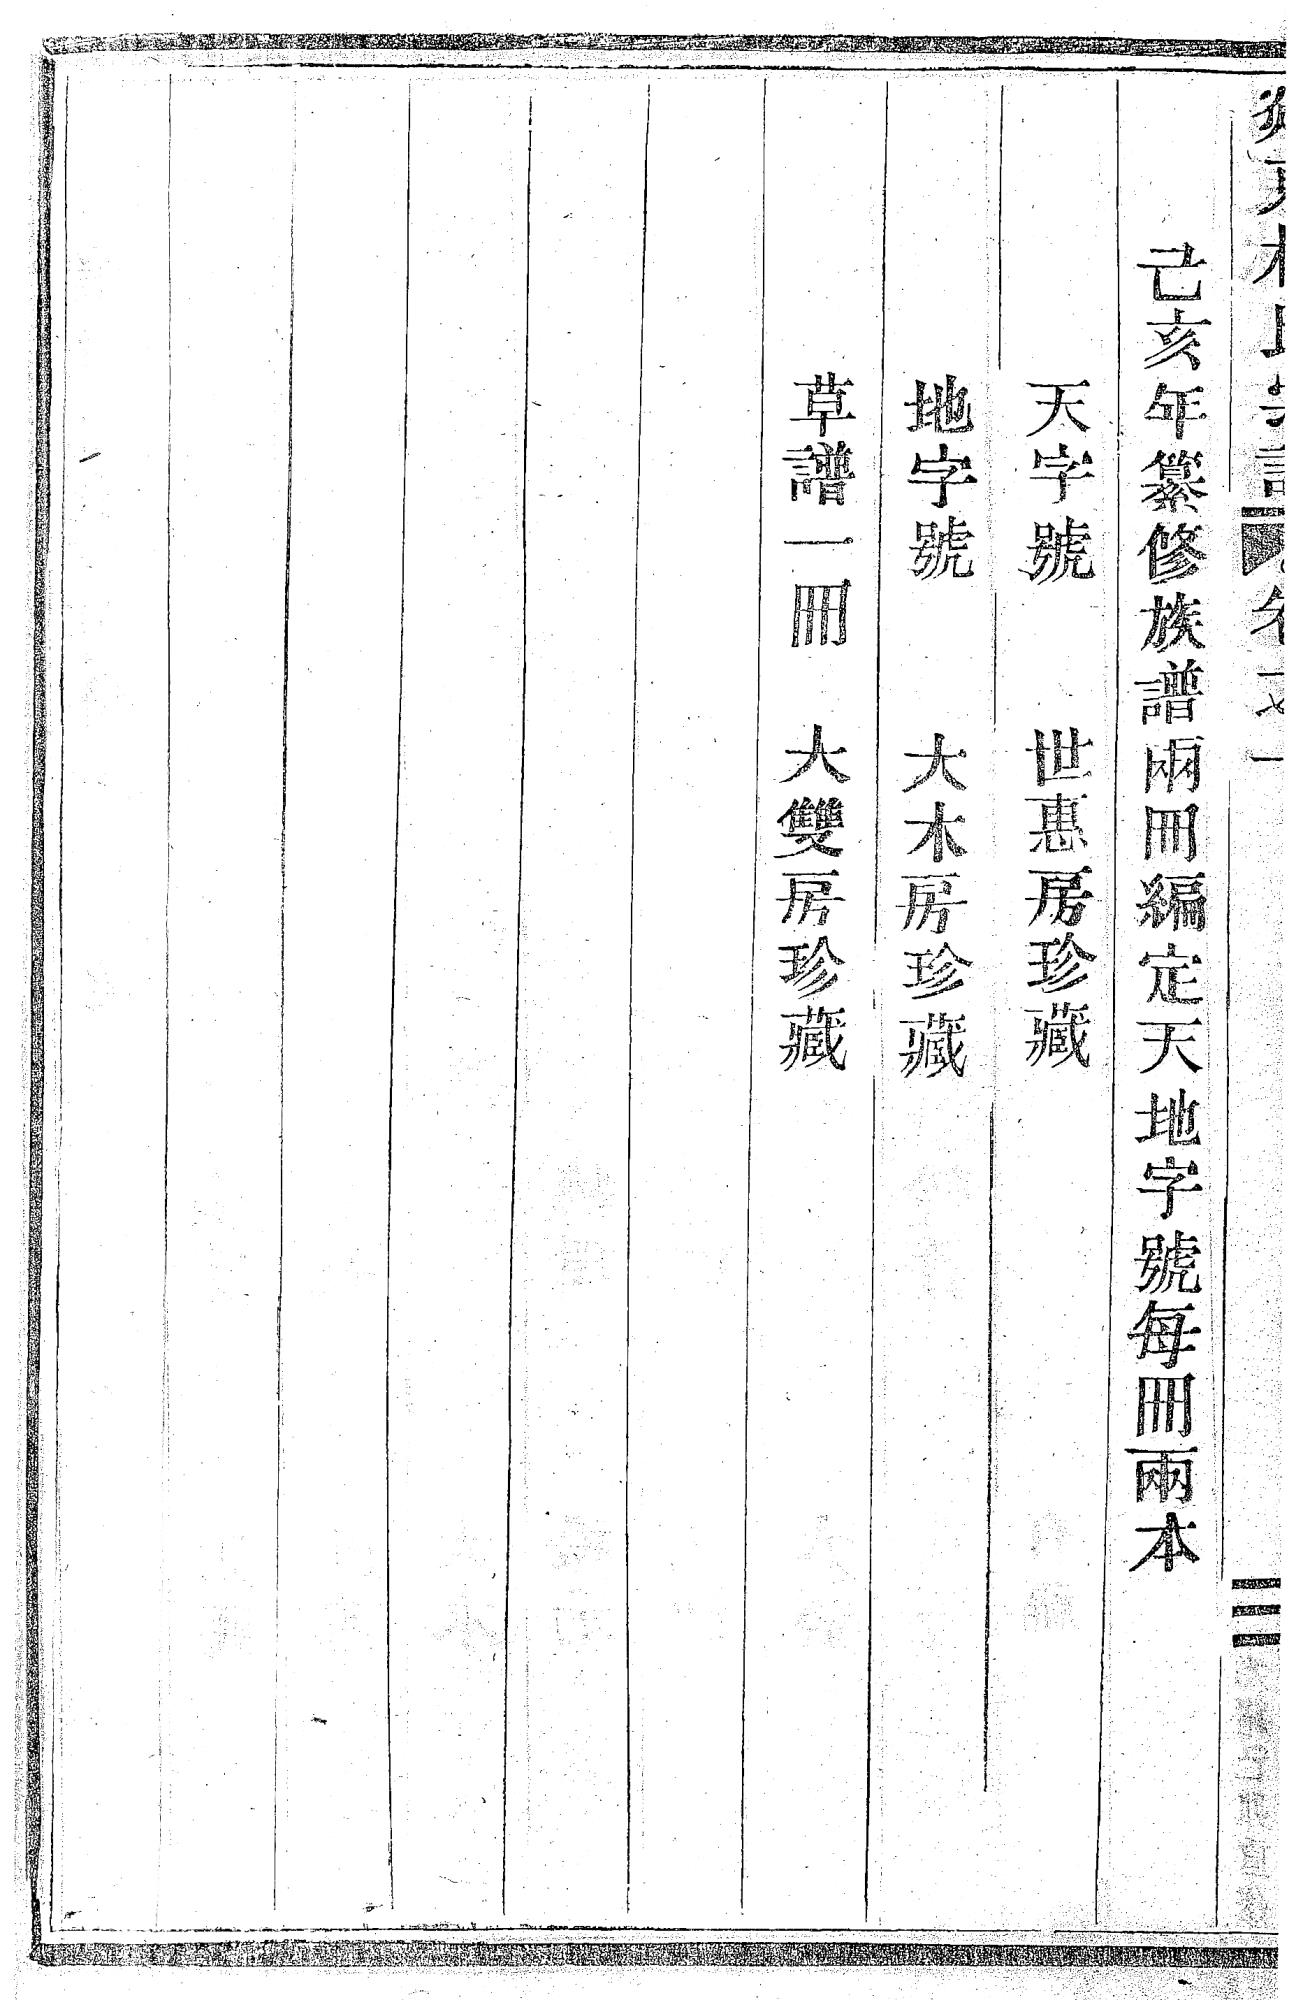 己亥年纂修族譜兩冊編定天地字號每冊兩本
天字號 世惠房珍藏
地字號 大木房珍藏
草譜一冊 大雙房珍藏